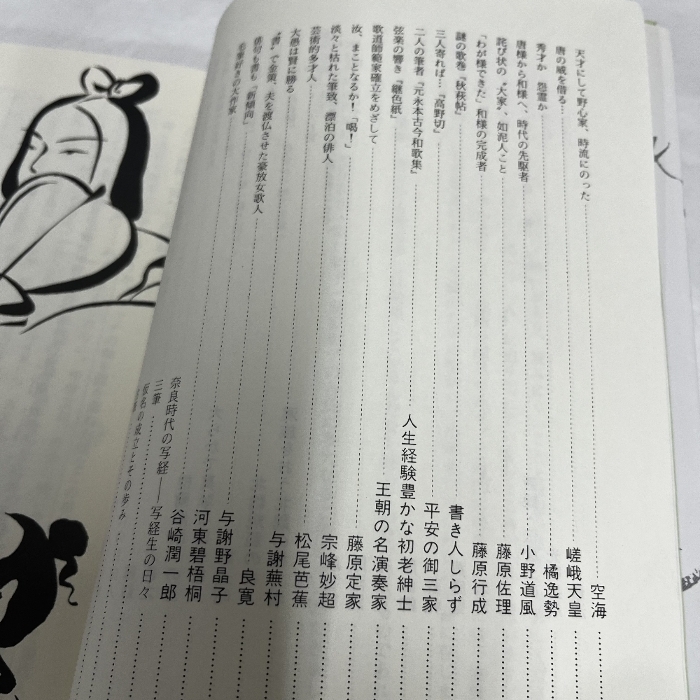 天才にして野心家、時流にのった……空海
唐の威を借る……嵯峨天皇
秀才か 怨霊か……橘逸勢
唐様から和様へ、時代の先駆者……小野道風
詫び状の〝大家〟、如泥人こと……藤原佐理
「わが様できた」和様の完成者……藤原行成
謎の歌巻『秋萩帖』……書き人しらず
三人寄れば…『高野切』……平安の御三家
二人の筆者『元永本古今和歌集』……人生経験豊かな初老紳士
弦楽の響き『継色紙』……王朝の名演奏家
歌道師範家確立をめざして……藤原定家
汝、まことなるか!「喝!」……宗峰妙超
淡々と枯れた筆致、漂泊の俳人……松尾芭蕉
芸術的多才人……与謝蕪村
大愚は賢に勝る……良寛
〝書〟で金策、夫を渡仏させた豪放女歌人……与謝野晶子
俳句も書も「新傾向」……河東碧梧桐
名筆好きの大作家……谷崎潤一郎
奈良時代の写経――写経生の日々
三筆
仮名の成立とその歩み